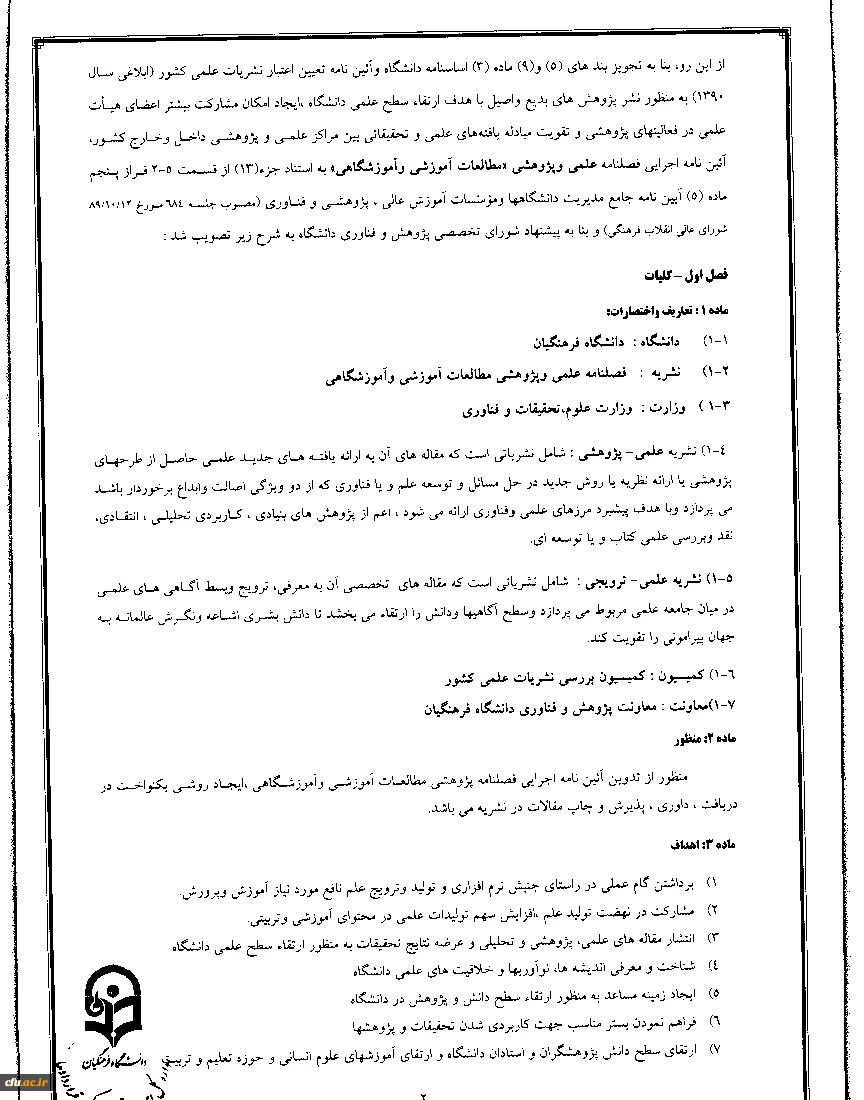 از این رو، بنا به تجویز بند های (۵) و(۹) ماده (۳) اساسنامه دانشگاه وآئین نامه تعیین اعتبار نشریات علمی کشور (ابلاغی سال
۱۳۹۰) به منظور نشر پژوهش های بدیع واصیل با هدف ارتقاء سطح علمی دانشگاه ،ایجاد امکان مشارکت بیشتر اعضای هیأت
علمی در فعالیتهای پژوهشی و تقویت مبادله یافته‌های علمی و تحقیقاتی بین مراکز علمی و پژوهشی داخل وخارج کشور،
آئین نامه اجرایی فصلنامه علمی وپژوهشی «مطالعات آموزشی وآموزشگاهی» به استناد جزء(۱۳) از قسمت ۵-۲ فراز پنجم
ماده (۵) آیین نامه جامع مدیریت دانشگاهها ومؤسسات آموزش عالی ، پژوهشی و فناوری (مصوب جلسه ۶۸۴ مورخ ۸۹/۱۰/۱۴
شورای عالی انقلاب فرهنگی) و بنا به پیشنهاد شورای تخصصی پژوهش و فناوری دانشگاه به شرح زیر تصویب شد :
فصل اول – کلیات
ماده ۱ : تعاریف واختصارات:
۱-۱) دانشگاه : دانشگاه فرهنگیان
۱-۲) نشریه : فصلنامه علمی وپژوهشی مطالعات آموزشی وآموزشگاهی
۱-۳ ) وزارت : وزارت علوم،تحقیقات و فناوری
۱-۴) نشریه علمی- پژوهشی : شامل نشریاتی است که مقاله های آن به ارائه یافته های جدید علمی حاصل از طرحهای
پژوهشی یا ارائه نظریه یا روش جدید در حل مسائل و توسعه علم و یا فناوری که از دو ویژگی اصالت وابداع برخوردار باشد
می پردازد وبا هدف پیشبرد مرزهای علمی وفناوری ارائه می شود ، اعم از پژوهش های بنیادی ، کاربردی تحلیلی ، انتقادی،
نقد وبررسی علمی کتاب و یا توسعه ای.
۱-۵) نشریه علمی- ترویجی : شامل نشریاتی است که مقاله های تخصصی آن به معرفی، ترویج وبسط آگاهی های علمی
در میان جامعه علمی مربوط می پردازد وسطح آگاهیها ودانش را ارتقاء می بخشد تا دانش بشری اشاعه ونگرش عالمانه به
جهان پیرامونی را تقویت کند.
۱-۶) کمیسیون : کمیسیون بررسی نشریات علمی کشور
۱-۷)معاونت : معاونت پژوهش و فناوری دانشگاه فرهنگیان
ماده ۲: منظور
منظور از تدوین آئین نامه اجرایی فصلنامه پژوهشی مطالعات آموزشی وآموزشگاهی ،ایجاد روشی یکنواخت در
دریافت ، داوری ، پذیرش و چاپ مقالات در نشریه می باشد.
ماده ۳: اهداف
۱) برداشتن گام عملی در راستای جنبش نرم افزاری و تولید وترویج علم نافع مورد نیاز آموزش وپرورش.
۲) مشارکت در نهضت تولید علم ،افزایش سهم تولیدات علمی در محتوای آموزشی وتربیتی.
۳) انتشار مقاله های علمی، پژوهشی و تحلیلی و عرضه نتایج تحقیقات به منظور ارتقاء سطح علمی دانشگاه
۴) شناخت و معرفی اندیشه ها، نوآوریها و خلاقیت های علمی دانشگاه
۵) ایجاد زمینه مساعد به منظور ارتقاء سطح دانش و پژوهش در دانشگاه
۶) فراهم نمودن بستر مناسب جهت کاربردی شدن تحقیقات و پژوهشها
۷) ارتقای سطح دانش پژوهشگران و استادان دانشگاه و ارتقای آموزشهای علوم انسانی و حوزه تعلیم و تربیت
دانشگاه فرهنگیان
cfu.ac.ir
۲